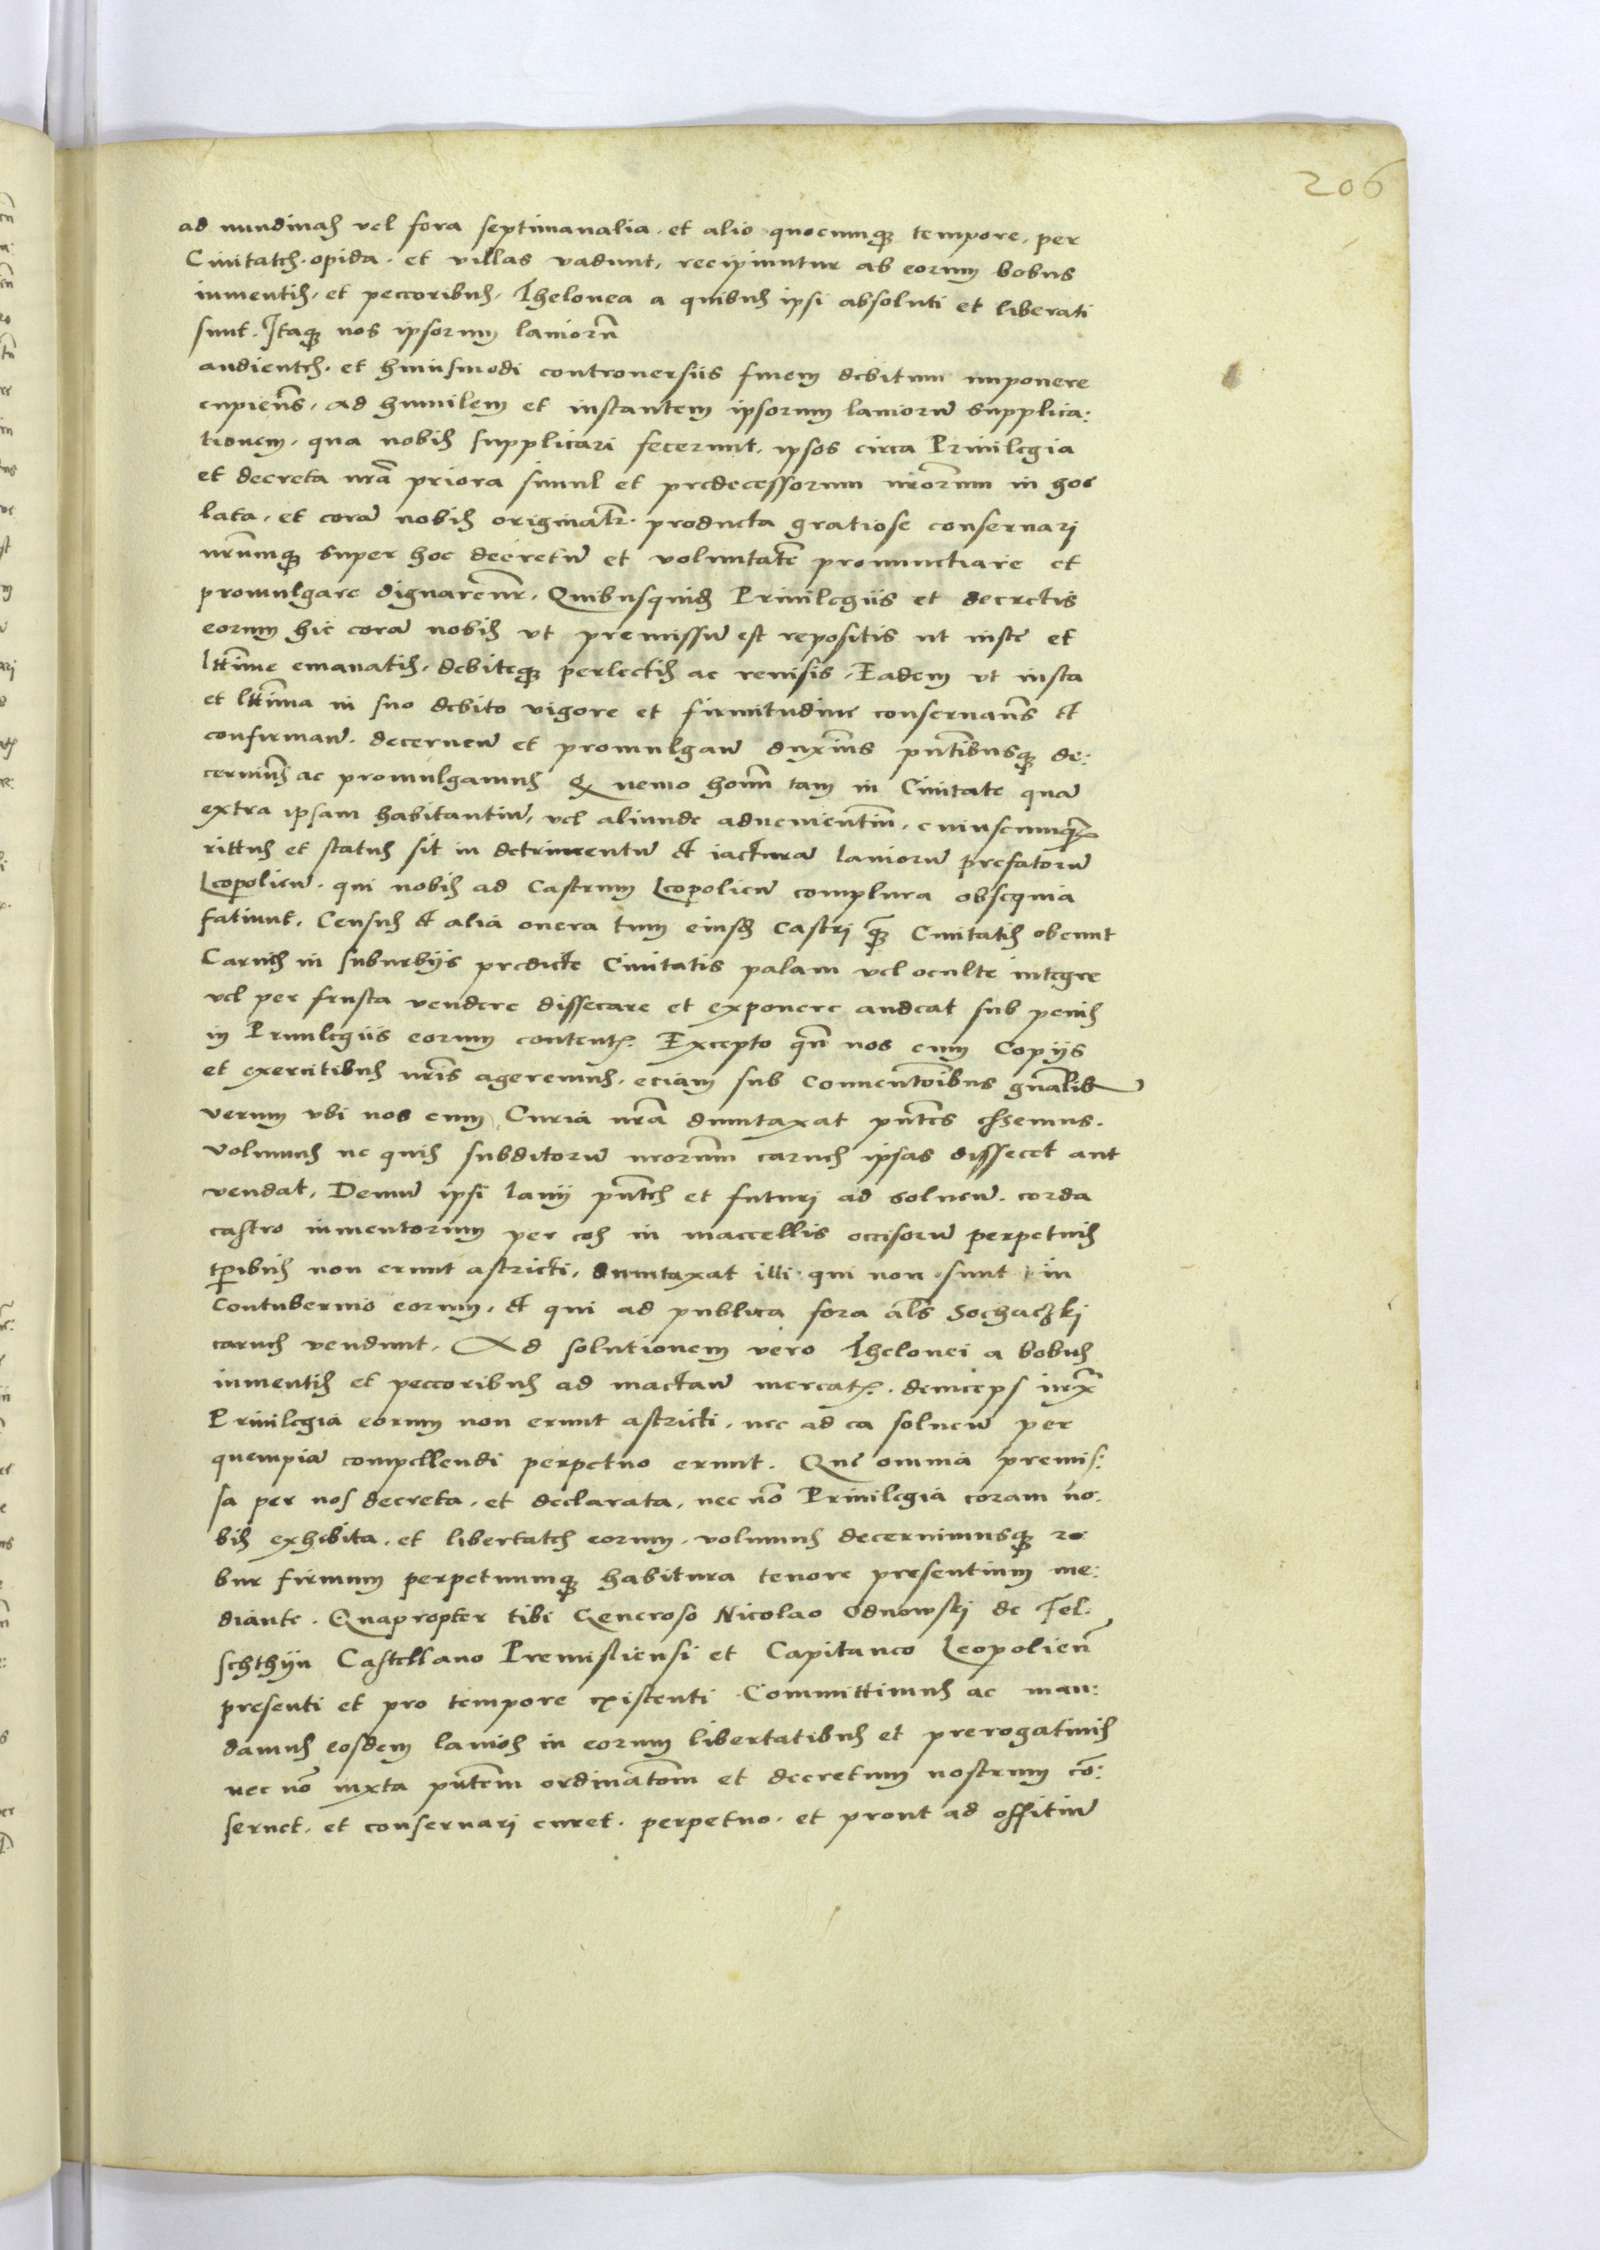 206
ad nundinas vel fora septimanalia. et alio quocumq3 tempore, per
Civitates. opida. et villas vadunt, recipiuntur ab eorum bobus
iumentis, et peccoribus, Thelonea a quibus ipsi absoluti et liberati
sunt. Itaq3 nos ipsorum laniorū
audientes. et huiusmodi controversiis finem debitum imponere
cupien̄s, ad humilem et instantem ipsorum laniorū supplica:
tionem, qua nobis supplicari fecerunt, ipsos circa Privilegia
et decreta nr̄a priora simul et predecessorum nr̄orum in hoc
lata, et corā nobis originalr̄. producta gratiose conservari
nr̄umq3 super hoc decretū et voluntatē pronunctiare et
promulgare dignarem̄r. Quibusquid3 Privilegiis et decretis
eorum hic corā nobis vt premissū est repositis ut iuste et
ltt̄ime emanatis, debiteq3 perlectis ac revisis, Eadem vt iusta
et ltt̄ima in suo debito vigore et firmitudine conservan̄s et
confirmaṅ. decerneṅ et promulgaṅ duxim̄s pn̄tibusq3 de:
cernim̄s ac promulgamus q̄ nemo hoīm tam in Civitate quā
extra ipsam habitantiū, vel aliunde advenientiū, cuiuscumq3
rittus et status sit in detrimentū et iacturā laniorū prefatorū
Leopolieṅ. qui nobis ad Castrum Leopolieṅ complura obsequia
fatiunt, Census et alia onera tum eiusd3 Castri q̄3 Civitatis obeunt
Carnes in suburbiis predicte Civitatis palam vel oculte integre
vel per frusta vendere dissecare et exponere audeat sub penis
in Privilegiis eorum content3. Excepto qn̄ nos cum Copiis
et exercitibus nr̄is ageremus, eciam sub Conventoībus gn̄alib3
verum vbi nos cum Curia nr̄a dumtaxat pn̄tes essemus.
volumus ne quis subditorū nr̄orum carnes ipsas dissecet aut
vendat, Demū ipsi lanii pn̄tes et futuri ad solueṅ. corda
castro iumentorum per eos in maccellis occisorū perpetuis
tp̄ibus non erunt astricti, dumtaxat illi qui non sunt in
Contubernio eorum, et qui ad publica fora al̄s Sochaczki
carnes vendunt, Ad solutionem vero Thelonei a bobus
iumentis et peccoribus ad mactaṅ mercat3. deinceps iux̄
Privilegia eorum non erunt astricti, nec ad ea solueṅ per
quempiā compellendi perpetuo erunt. Que omnia premis:
sa per nos decreta, et declarata, nec nō Privilegia coram no:
bis exhibita, et libertates eorum, volumus decernimusq3 ro
bur firmum perpetuumq3 habitura tenore presentium me:
diante. Quapropter tibi Generoso Nicolao Odnowski de Fel:
schthyn Castellano Premisliensi et Capitaneo Leopolien̄
presenti et pro tempore existenti Committimus ac man:
damus eosdem lanios in eorum libertatibus et prerogativis
nec nō iuxta pn̄tem ordinatōm et decretum nostrum cō:
servet, et conservari curet. perpetuo. et prout ad offitiū